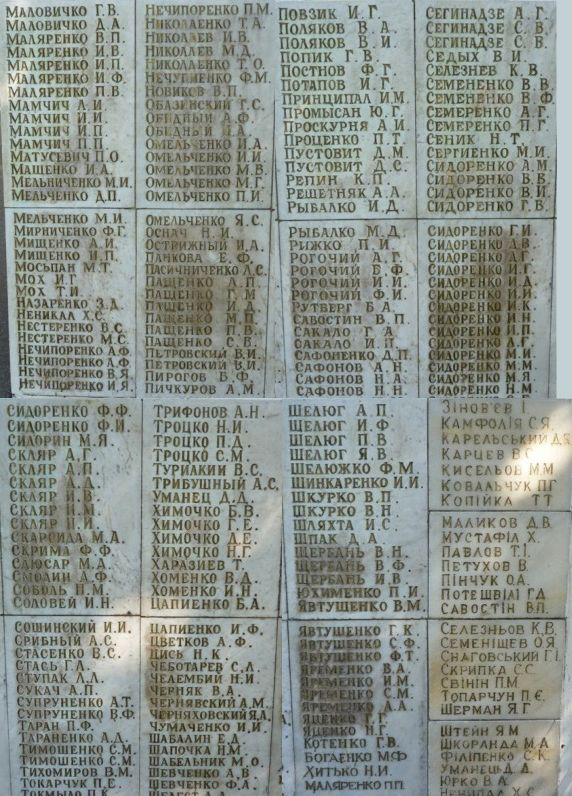 МАЛОВИЧКО Г.В.
МАЛОВИЧКО Д.А.
МАЛЯРЕНКО В.П.
МАЛЯРЕНКО И.В.
МАЛЯРЕНКО И.П.
МАЛЯРЕНКО И.Ф.
МАЛЯРЕНКО П.В.
МАМЧИЧ А.И.
МАМЧИЧ И.И.
МАМЧИЧ И.П.
МАМЧИЧ П.П.
МАТУСЕВИЧ П.О.
МАЩЕНКО И.А.
МЕЛЬНИЧЕНКО М.И.
МЕЛЬЧЕНКО Д.П.
МЕЛЬЧЕНКО М.И.
МИРНИЧЕНКО Ф.Г.
МИЩЕНКО А.И.
МИЩЕНКО И.П.
МОСЬПАН М.Т.
МОХ И.Г.
МОХ Т.И.
НАЗАРЕНКО З.Д.
НЕНИКАЛ Х.С.
НЕСТЕРЕНКО В.С.
НЕСТЕРЕНКО М.С.
НЕЧИПОРЕНКО А.Ф.
НЕЧИПОРЕНКО А.Ф.
НЕЧИПОРЕНКО В.Я.
НЕЧИПОРЕНКО И.Я.
НЕЧИПОРЕНКО П.М.
НИКОЛАЕНКО Т.А.
НИКОЛАЕВ И.В.
НИКОЛАЕВ М.Д.
НИКОЛАЕНКО Т.О.
НЕЧУПИЕНКО Ф.М.
НОВИКОВ В.П.
ОБАЗИНСКИЙ Г.С.
ОБИДНЫЙ А.Ф.
ОБИДНЫЙ И.А.
ОМЕЛЬЧЕНКО И.А.
ОМЕЛЬЧЕНКО И.И.
ОМЕЛЬЧЕНКО М.В.
ОМЕЛЬЧЕНКО М.Г.
ОМЕЛЬЧЕНКО П.И.
ОМЕЛЬЧЕНКО Я.С.
ОСНАЧ Н.И.
ОСТРИЖНЫЙ И.А.
ПАНКОВА Е.Ф.
ПАСИЧНИЧЕНКО Л.С.
ПАЩЕНКО А.П.
ПАЩЕНКО Г.М.
ПАЩЕНКО И.Д.
ПАЩЕНКО М.П.
ПАЩЕНКО П.В.
ПАЩЕНКО С.В.
ПЕТРОВСКИЙ В.И.
ПЕТРОВСКИЙ В.И.
ПИРОГОВ Б.Ф.
ПИЧКУРОВ А.М.
ПОВЗИК И.Г.
ПОЛЯКОВ В.А.
ПОЛЯКОВ В.И.
ПОПИК Г.В.
ПОСТНОВ Ф.Г.
ПОТАПОВ И.Г.
ПРИНЦИПАЛ И.М.
ПРОМЫСАН Ю.Г.
ПРОСКУРНЯ А.И.
ПРОЦЕНКО П.Т.
ПУСТОВИТ Д.М.
ПУСТОВИТ Д.С.
РЕПИН К.П.
РЕШЕТНЯК А.А.
РЫБАЛКО И.Д.
РЫБАЛКО М.Д.
РИЖКО П.И.
РОГОЧИЙ А.Г.
РОГОЧИЙ Б.Ф.
РОГОЧИЙ И.И.
РОГОЧИЙ Ф.И.
РУТВЕРГ Б.А.
САВОСТИН В.П.
САКАЛО Г.А.
САКАЛО И.П.
САФОНЕНКО Д.П.
САФОНОВ А.Н.
САФОНОВ Н.А.
САФОНОВ Н.Н.
СЕГИНАДЗЕ А.Г.
СЕГИНАДЗЕ С.В.
СЕГИНАДЗЕ С.В.
СЕДЫХ В.И.
СЕЛЕЗНЕВ К.В.
СЕМЕНЕНКО В.В.
СЕМЕНЕНКО В.Ф.
СЕМЕРЕНКО А.Г.
СЕМЕРЕНКО П.Г.
СЕНИК Н.Т.
СЕРГИЕНКО М.И.
СИДОРЕНКО А.М.
СИДОРЕНКО В.В.
СИДОРЕНКО В.И.
СИДОРЕНКО Г.В.
СИДОРЕНКО Г.И.
СИДОРЕНКО Д.В.
СИДОРЕНКО Д.Г.
СИДОРЕНКО И.Г.
СИДОРЕНКО И.Д.
СИДОРЕНКО И.И.
СИДОРЕНКО И.К.
СИДОРЕНКО И.Н.
СИДОРЕНКО И.П.
СИДОРЕНКО Л.Г.
СИДОРЕНКО М.И.
СИДОРЕНКО М.М.
СИДОРЕНКО М.Я.
СИДОРЕНКО Н.М.
СИДОРЕНКО Ф.Ф.
СИДОРЕНКО Ф.И.
СИДОРИН М.Я.
СКЛЯР А.Г.
СКЛЯР А.П.
СКЛЯР А.Д.
СКЛЯР И.В.
СКЛЯР Н.М.
СКЛЯР Н.И.
М.А.
СКРИМА Ф.Ф.
СЛЮСАР М.А.
СМОЛИН А.Ф.
СОБОЛЬ Н.М.
СОЛОВЕЙ И.Н.
СОШИНСКИЙ И.И.
СРИБНЫЙ А.С.
СТАСЕНКО В.С.
СТАСЬ Г.А.
СТУПАК Л.Л.
СУКАЧ А.П.
СУПРУНЕНКО А.Т.
СУПРУНЕНКО В.Ф.
ТАРАН П.Ф.
ТАРАНЕНКО А.Д.
ТИМОШЕНКО С.М.
ТИМОШЕНКО С.М.
ТИХОМИРОВ В.М.
ТОКАРЧУК П.Е.
ТОКМЫЛО П.К.
ТРИФОНОВ А.Н.
ТРОЦКО Н.И.
ТРОЦКО П.Д.
ТРОЦКО С.М.
ТУРИЛКИН В.С.
ТРИБУШНЫЙ А.С.
УМАНЕЦ Д.Д.
ХИМОЧКО Б.В.
ХИМОЧКО Г.Е.
ХИМОЧКО Д.Е.
ХИМОЧКО Н.Г.
ХАРАЗИЕВ Т.
ХОМЕНКО В.Д.
ХОМЕНКО И.Н.
ЦАПИЕНКО Б.А.
ЦАПИЕНКО И.Ф.
ЦВЕТКОВ А.Ф.
ЦИСЬ Н.К.
ЧЕБОТАРЕВ С.Л.
ЧЕЛЕМБИЙ Н.И.
ЧЕРНЯК В.А.
ЧЕРНЯВСКИЙ А.М.
ЧЕРНЯХОВСКИЙ Я.Л.
ЧУМАЧЕНКО И.И.
ШАБАЛИН Е.Д.
ШАПОЧКА Н.М.
ШАБЕЛЬНИК М.О.
ШЕВЧЕНКО А.В.
ШЕВЧЕНКО Ф.А.
ШЕЛЮГ А.П.
ШЕЛЮГ И.Ф.
ШЕЛЮГ П.В.
ШЕЛЮГ Я.В.
ШЕЛЮЖКО Ф.М.
ШИНКАРЕНКО И.И.
ШКУРКО В.П.
ШКУРКО В.Н.
ШЛЯХТА И.С.
ШПАК Д.А.
ЩЕРБАНЬ В.Н.
ЩЕРБАНЬ В.Ф.
ЩЕРБАНЬ И.В.
ЮХИМЕНКО П.И.
ЯВТУШЕНКО В.М.
ЯВТУШЕНКО Г.К.
ЯВТУШЕНКО С.Ф.
ЯВТУШЕНКО Ф.Т.
ЯРЕМЕНКО В.А.
ЯРЕМЕНКО И.М.
ЯРЕМЕНКО С.М.
ЯРЕМЕНКО А.А.
ЯЦЕНКО Г.Г.
ЯЦЕНКО Н.Г.
КОТЕНКО Г.В.
БОГАЕНКО М.Ф
ХИТЬКО Н.И.
МАЛЯРЕНКО П.П.
ЗІНОВ'ЄВ І.
КАМФОЛІЯ С.Я.
КАРЕЛЬСЬКИЙ Д.Я
КАРЦЕВ В.С.
КИСЕЛЬОВ М.М
КОВАЛЬЧУК П.Г
КОПІЙКА Т.Т
МАЛИКОВ Д.В.
МУСТАФІЛ Х.
ПАВЛОВ Т.І.
ПЕТУХОВ В.
ПІНЧУК О.А.
ПОТЕШВІЛІ Г.Д.
САВОСТІН В.П.
СЕЛЕЗНЬОВ К.В.
СЕМЕНІЩЕВ О.Я
СНАГОВСЬКИЙ Г.І.
СКРИПКА С.С.
СВІНІН П.М
ТОПАРЧУК П.Є.
ШЕРМАН Я.Г
ШТЕЙН Я.М
ШКОРАНДА М.А
ФІЛІПЕНКО С.К.
УМАНЕЦЬ Д.Д.
ЮРКО В.А.
НЕНИПАЛ Х.С